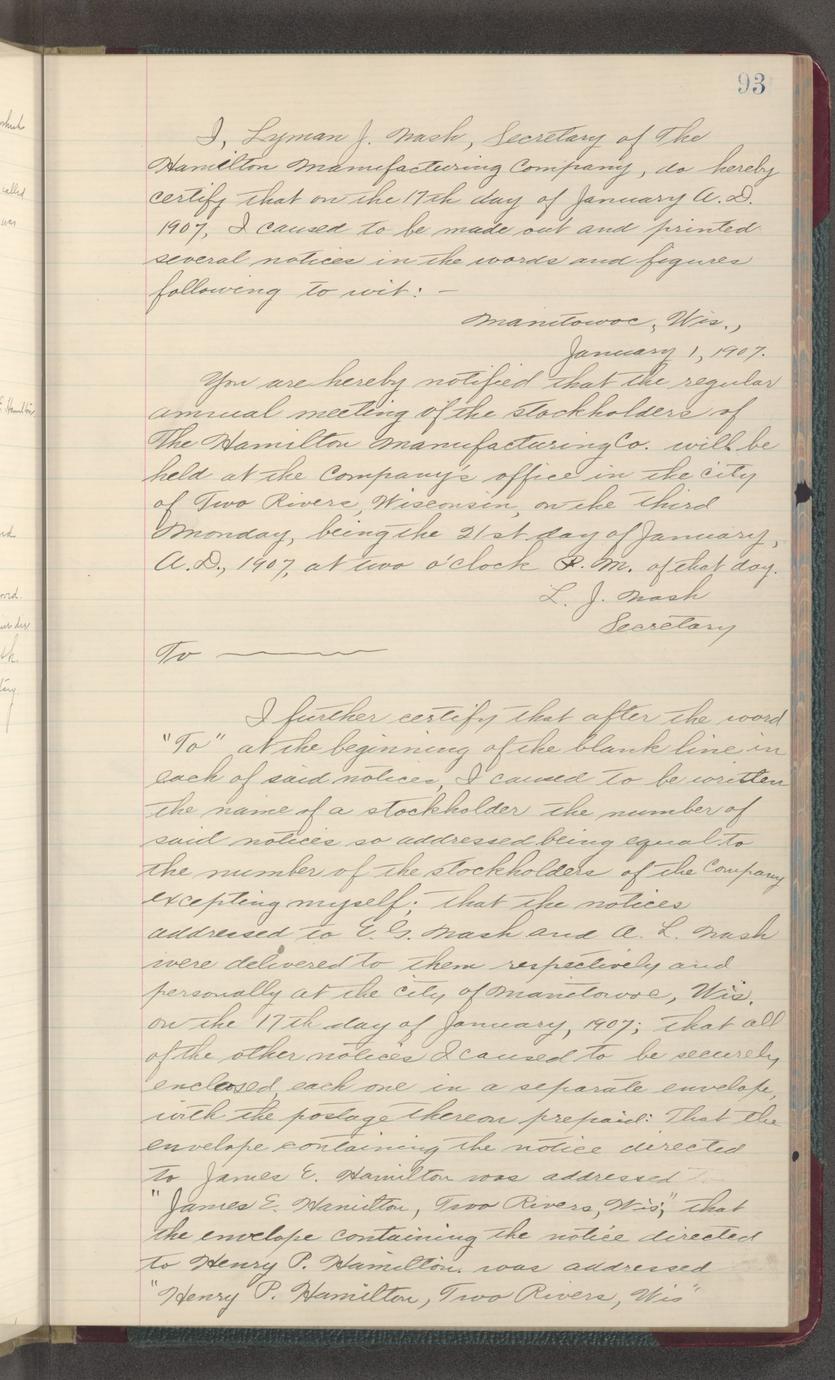 93
I, Lyman J. Nash, Secretary of The
Hamilton Manufacturing Company, do hereby
certify that on the 17th day of January A.D.
1907, I caused to be made out and printed
several notices in the words and figures
following to wit: -
Manitowoc, Wis.,
January 1, 1907.
You are hereby notified that the regular
annual meeting of the stockholders of
The Hamilton Manufacturing Co. will be
held at the Company's office in the city
of Two Rivers, Wisconsin, on the third
Monday, being the 21st day of January,
A.D., 1907, at two o'clock P.M. of that day.
L. J. Nash
Secretary
To
I further certify that after the word
"To" at the beginning of the blank line in
each of said notices, I caused to be written
the name of a stockholder the number of
said notices so addressed being equal to
the number of the stockholders of the Company
excepting myself; that the notices
addressed to E. G. Nash and A. L. Nash
were delivered to them respectively and
personally at the city of Manitowoc, Wis.
on the 17th day of January, 1907; that all
of the other notices I caused to be securely
enclosed, each one in a separate envelope,
with the postage thereon prepaid: That the
envelope containing the notice directed
to James E. Hamilton was addressed
"James E. Hamilton, Two Rivers, Wis," that
the envelope containing the notice directed
to Henry P. Hamilton, was addressed
"Henry P. Hamilton, Two Rivers, Wis"